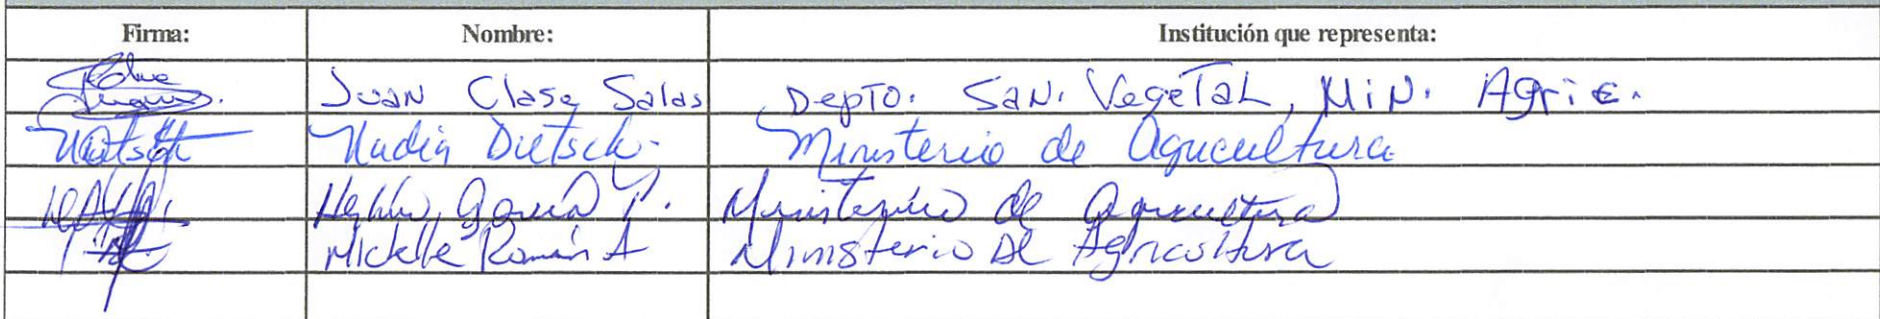 Firma: Nombre: Institución que representa:
Juan Clase Salas Depto. San. Vegetal, Min. Agric.
Nadia Dietsch. Ministerio de Agricultura
García P. Ministerio de Agricultura
Michelle Román A Ministerio de Agricultura